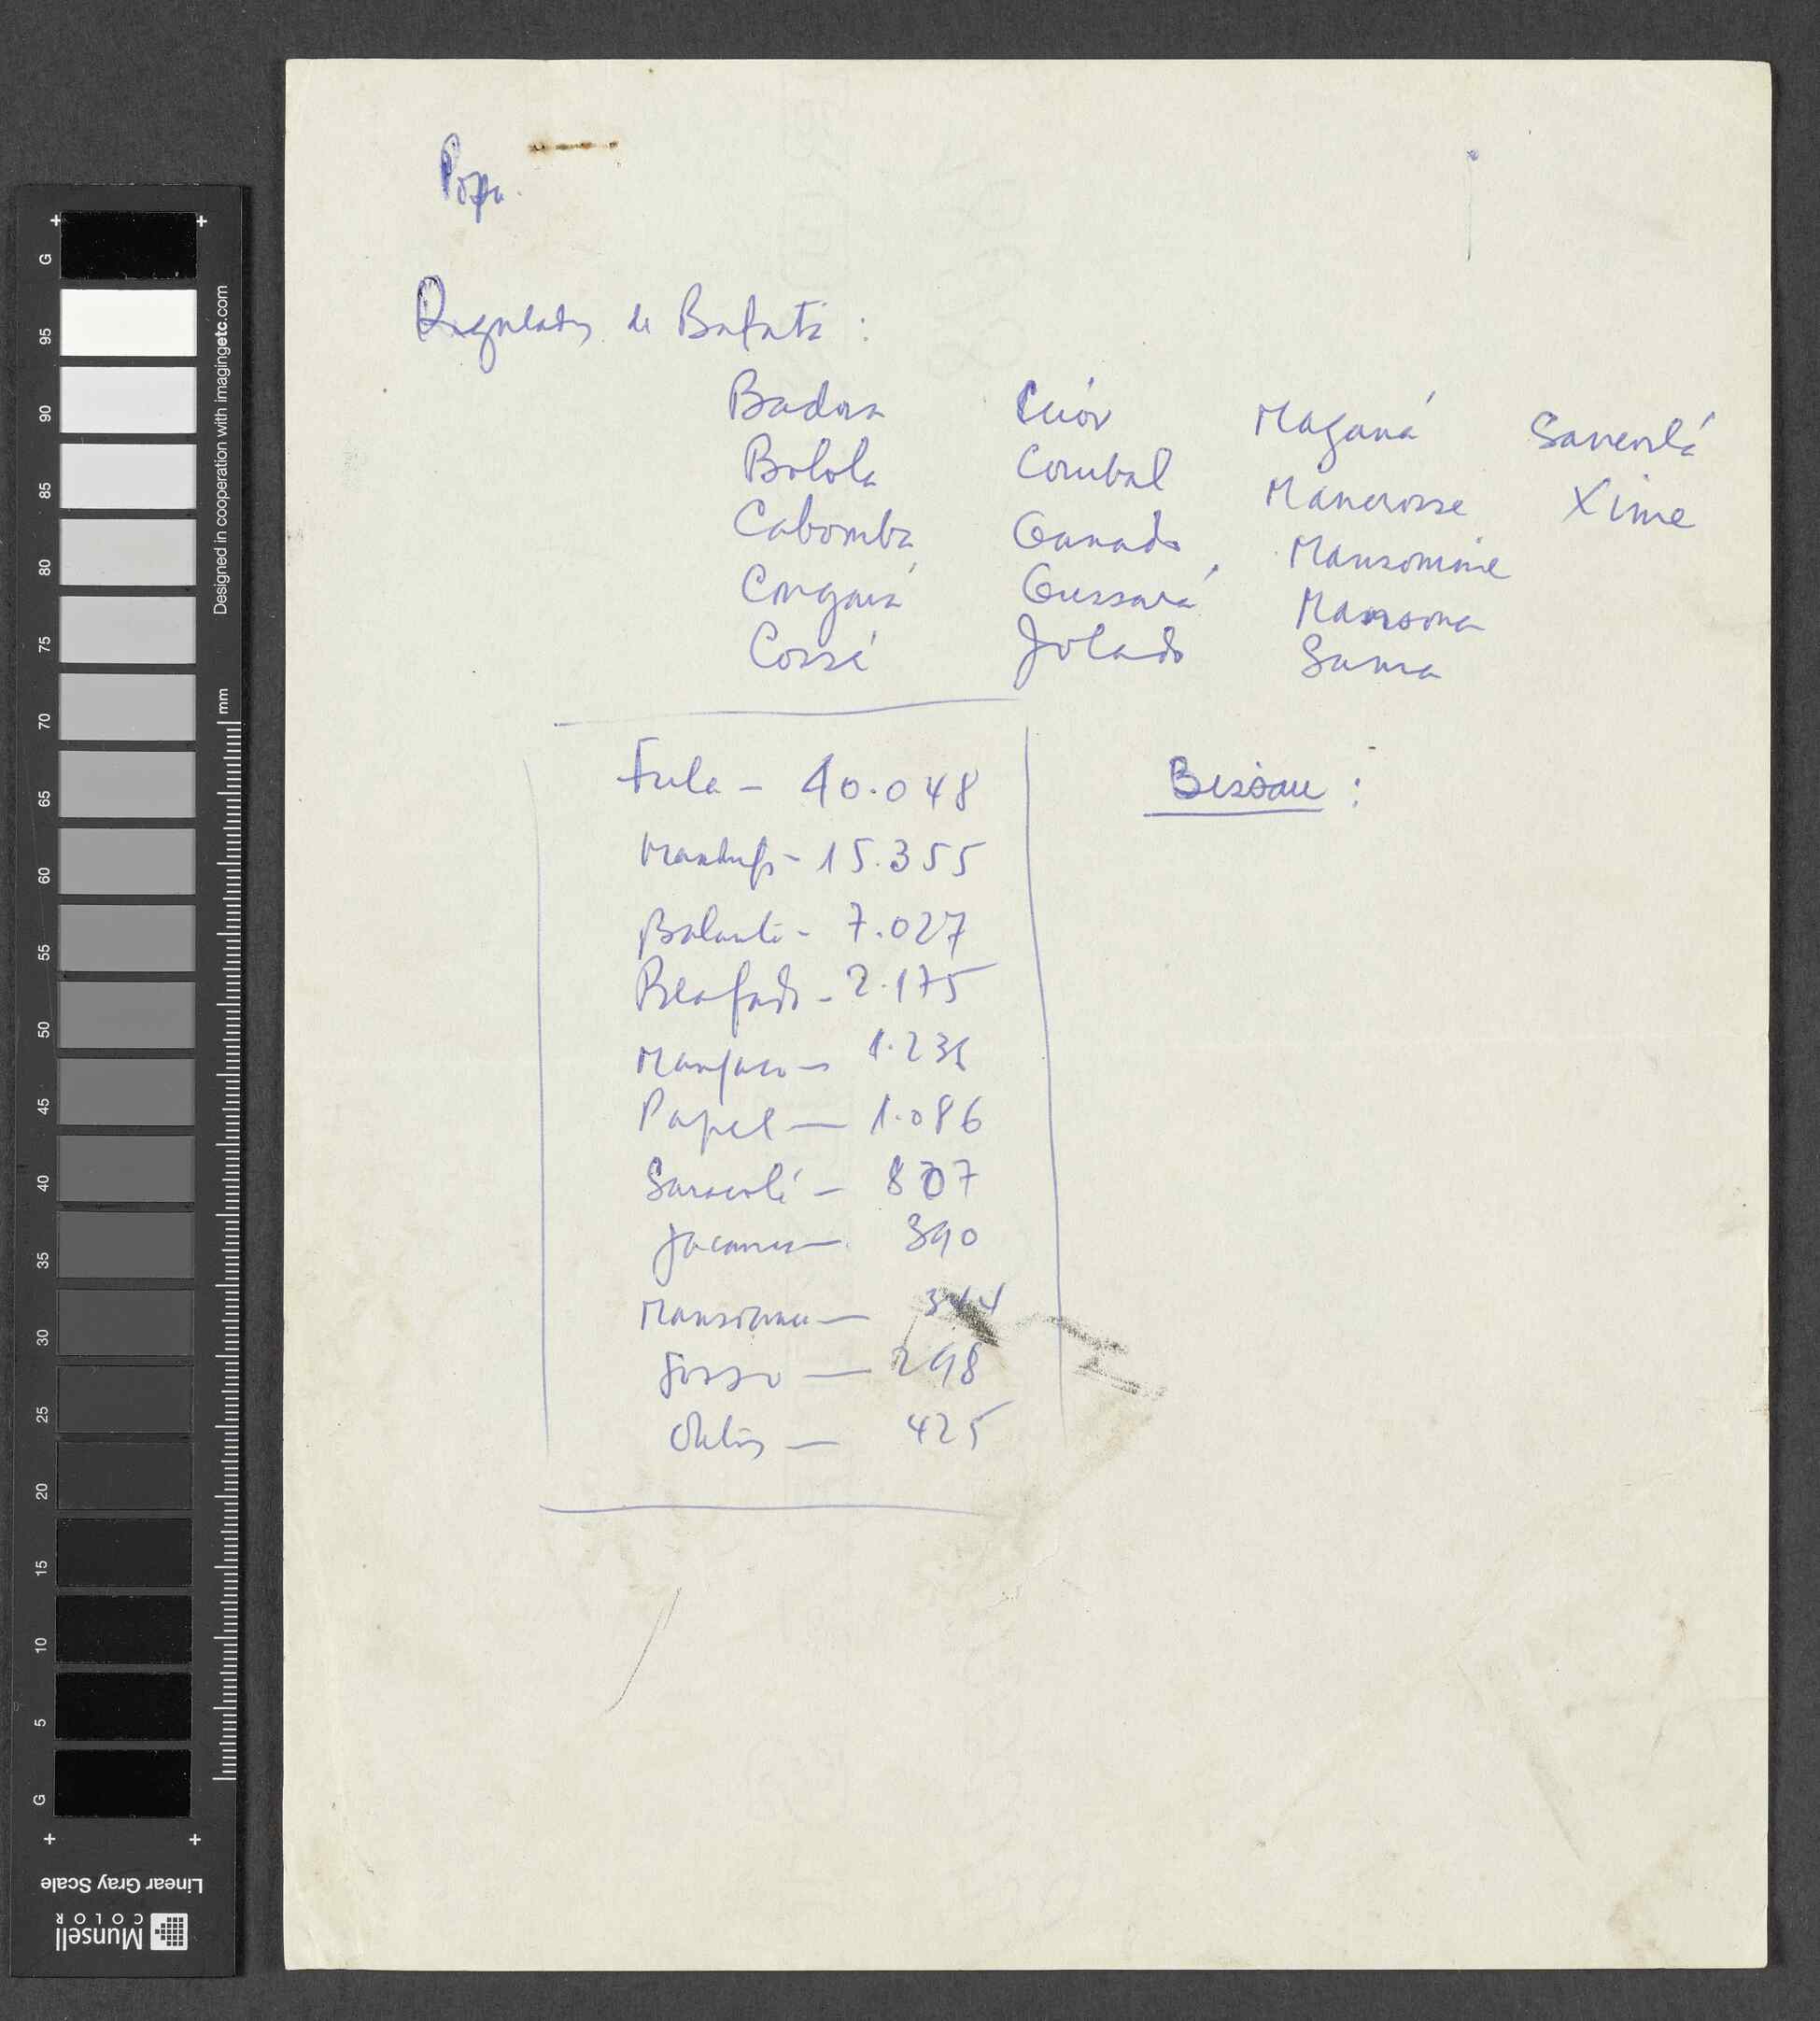 Popu.
Regulados de Bafatá :
Badora Cuór Maganá Sancorlá
Bolola Corubal Mancrosse Xime
Cabomba Ganado Mansomine
Congaiá Gussará Mansona
Cossé Joladó Sama
Fula — 40.048
Mandinga — 15.355
Balanta — 7.027
Beafada — 2.175
Manjaco — 1.236
Papel — 1.086
Saracolé — 807
Jacanca — 390
Mansoanca — 344
Sosso — 298
Outros — 425
Bissau :
G
95
90
85
80
75
70
65
60
55
50
45
40
35
30
25
20
15
10
5
G
Designed in cooperation with imagingetc.com
mm
Linear Gray Scale
Munsell
COLOR